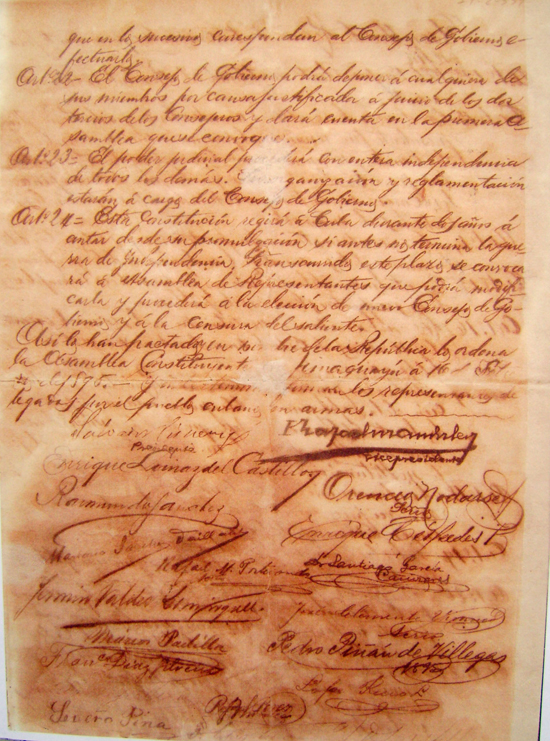 que en lo sucesivo correspondan al Consejo de Gobierno e-
fectuarlo.
Art. 22= El Consejo de Gobierno podrá deponer á cualquiera de
sus miembros por causa justificada á juicio de los dos
tercios de los Consejeros y dará cuenta en la primera A-
samblea que se convoque.
Art. 23= El poder judicial procederá con entera independencia
de todos los demas. Su organización y reglamentación
estarán á cargo del Consejo de Gobierno.
Art. 24= Esta Constitución regirá á Cuba durante dos años á
contar desde su promulgación si antes no termina la gue-
rra de Independencia. Transcurrido este plazo se convoca-
rá á Asamblea de Representantes que podrá modifi-
carla y procederá á la elección de nuevo Consejo de Go-
bierno y á la censura del saliente.
Así lo han pactado en nombre de la República lo ordena
la Asamblea Constituyente Jimaguayú á 16
los representantes de-
legados por el pueblo cubano en armas.
Salvador Cisneros
Rafael Manduley
Vicepresidente
Enrique Loinaz del Castillo
Orencio Nodarse
Secrio
Raimundo Sánchez
Enrique Céspedes
Mariano Sánchez Vaillant
Rafael M. Portuondo
Dr Santiago García
Cañizares
Fermín Valdés Domínguez
Marcos Padilla
Pedro Piñán de Villegas
Franco Díaz Silveira
Lope Recio L.
Severo Pina
Rafael Pérez